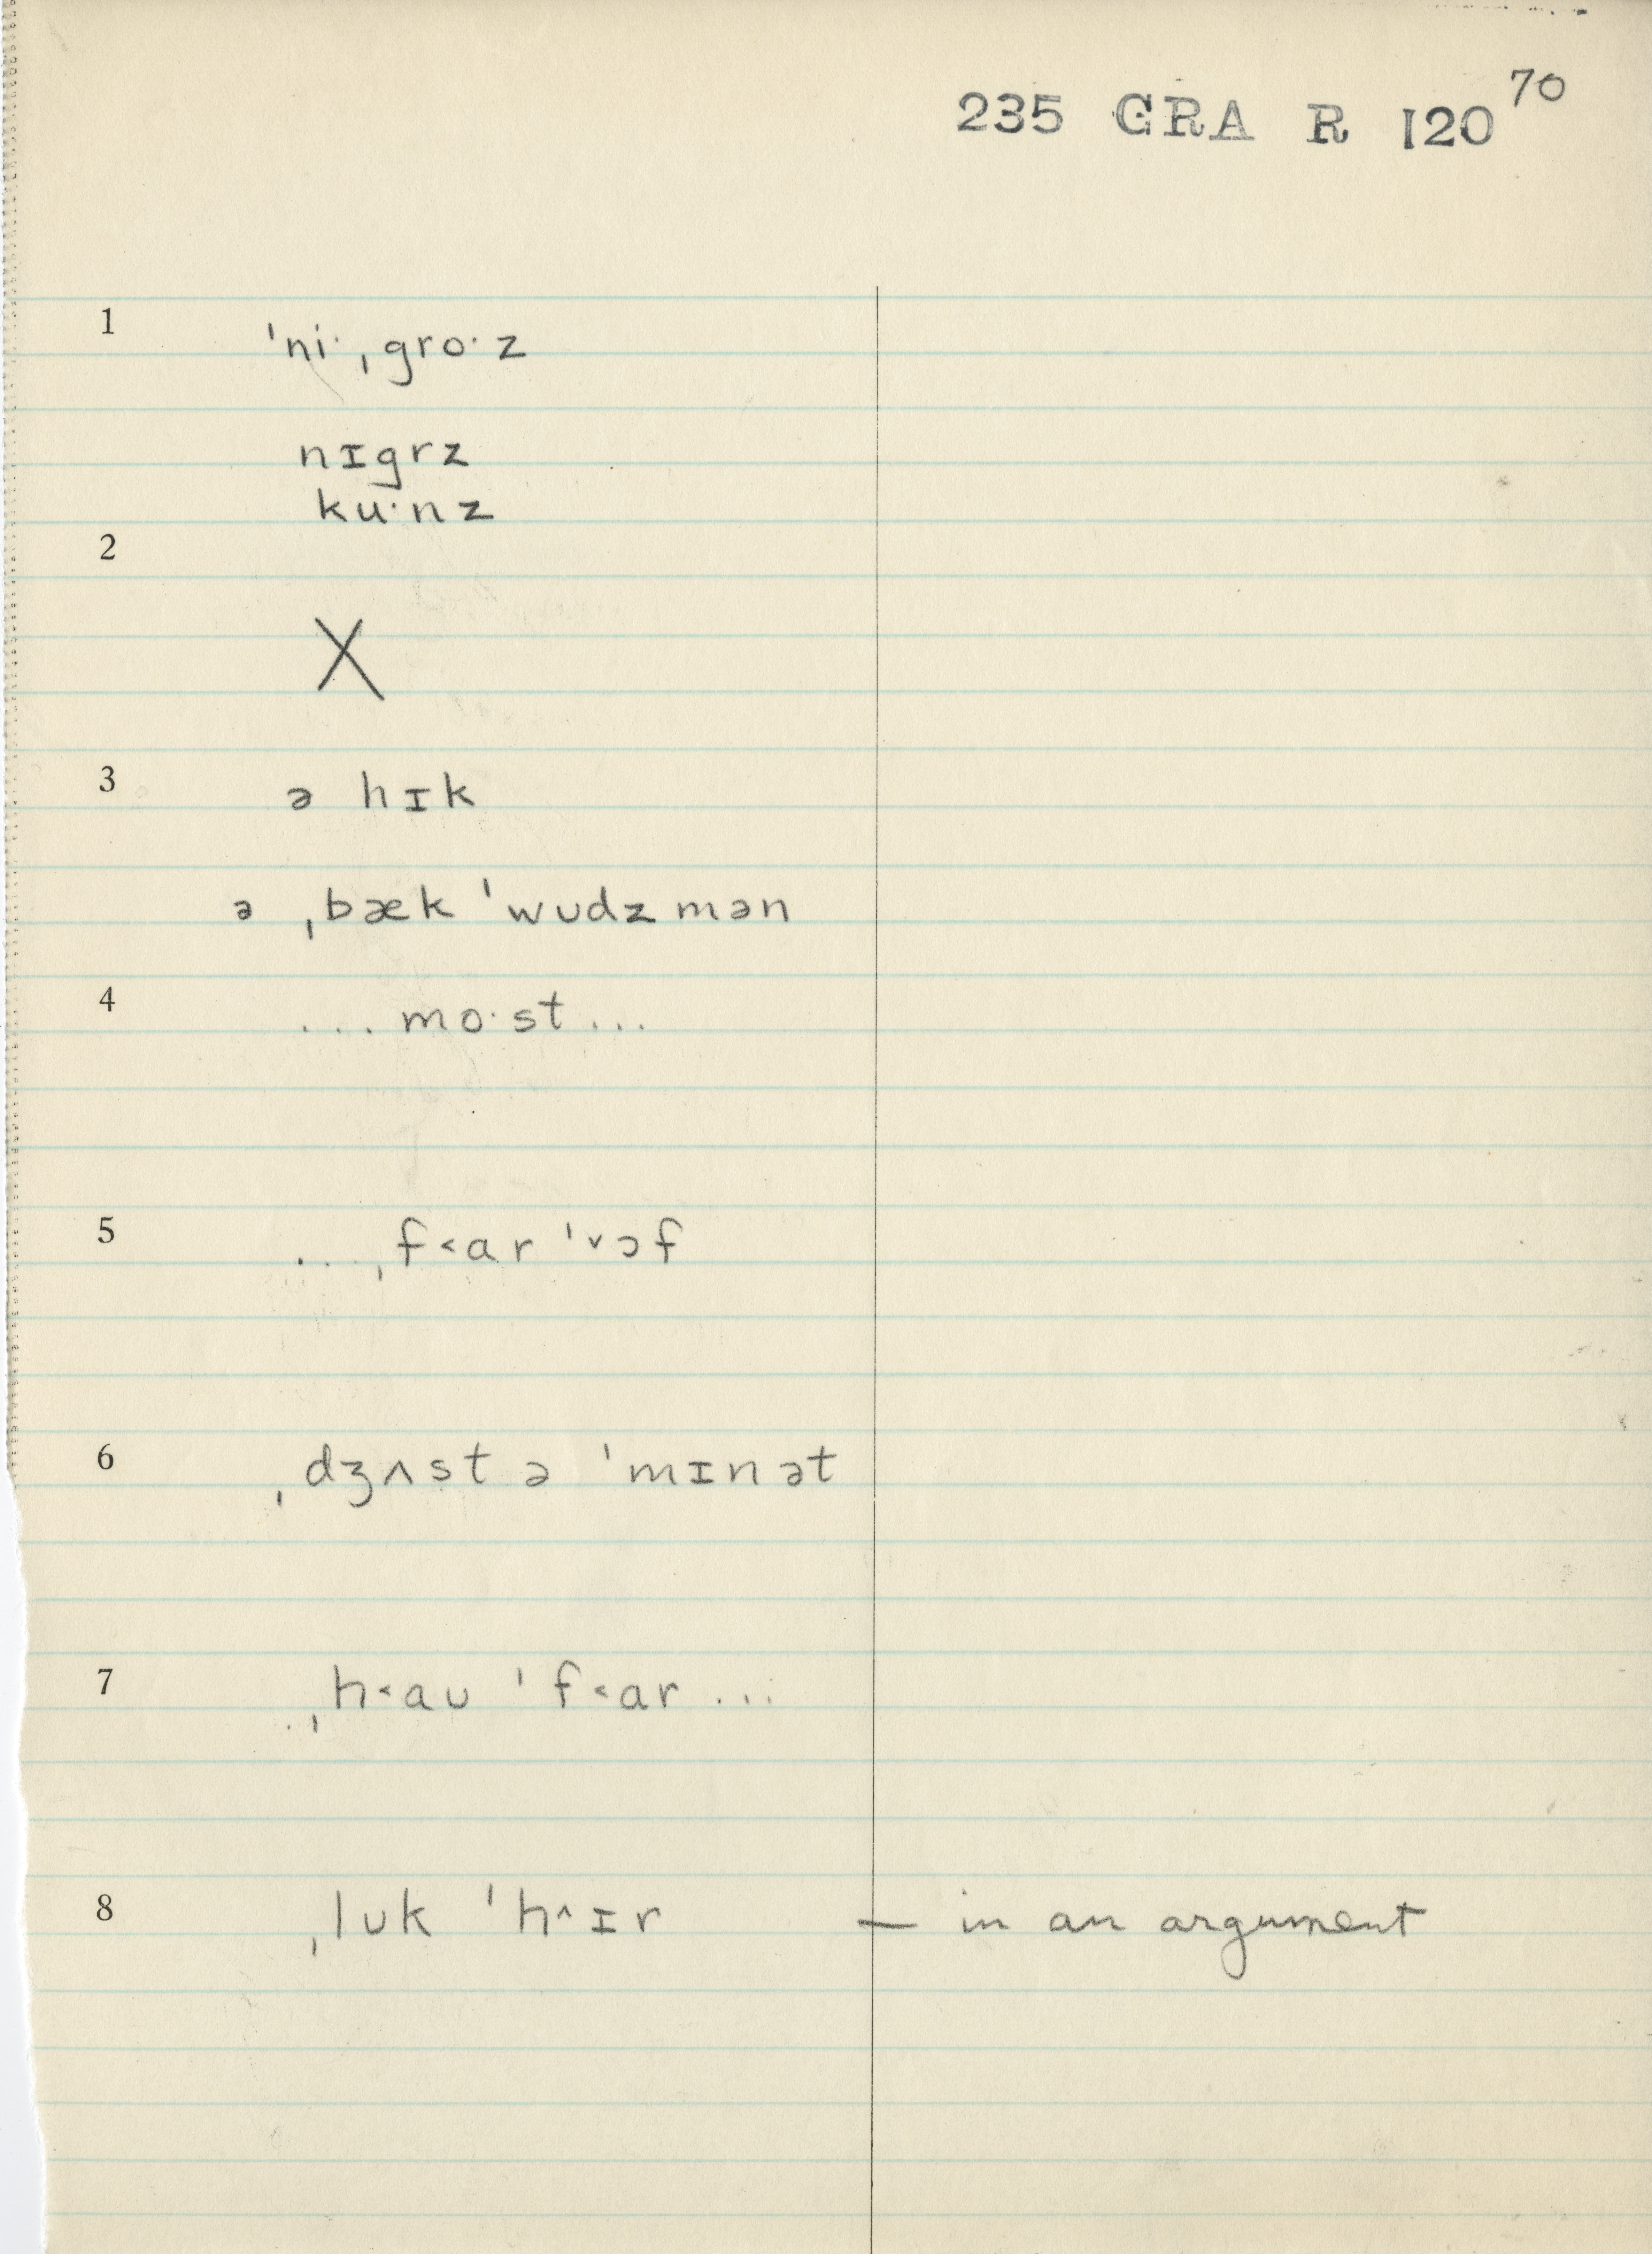 70
235 GRA R 120
1 ˈniˑˌgroˑz
nɪgrz
kuˑnz
2
X
3 ə hɪk
ə ˌbæk ˈwʊdzmən
4 ...moˑst...
5 ...ˌf˂ar ˈ˅ɔf
6 ˌdʒʌst ə ˈmɪnət
7 ..ˌh˂aʊ ˈf˂ar ...
8 ˌlʊk ˈh˄ɪr — in an argument